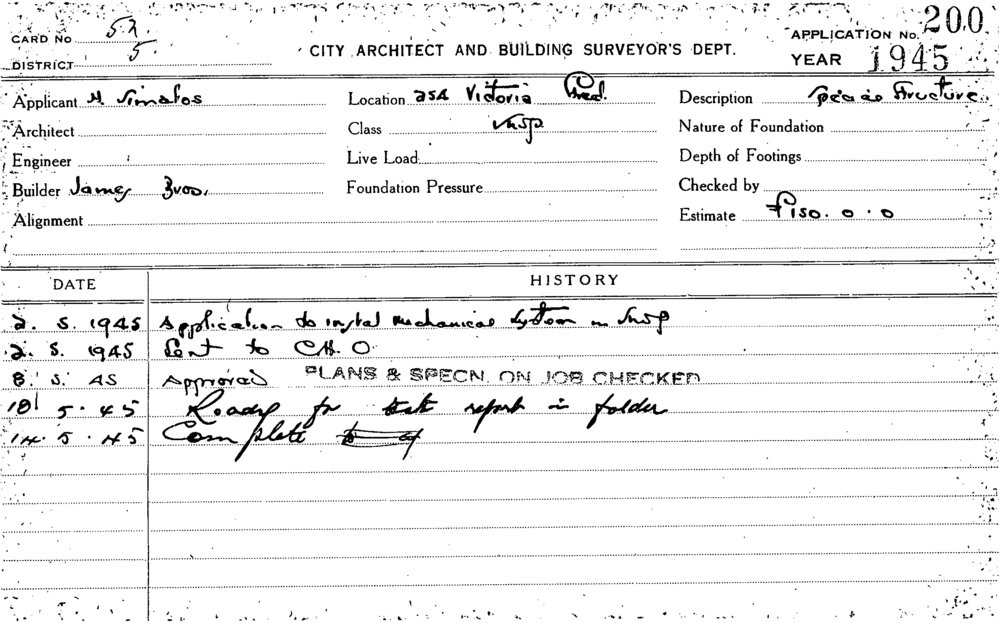 CARD No 52
DISTRICT 5.
CITY ARCHITECT AND BUILDING SURVEYOR'S DEPT.
APPLICATION No. 200
YEAR 1945
Applicant H
Location 252 Victoria Pred.
Description Special Structure
Architect
Class Shop
Nature of Foundation
Engineer
Live Load
Depth of Footings
Builder James Bros.
Foundation Pressure
Checked by
Alignment
Estimate £150. 0. 0
DATE HISTORY
2. 5. 1945 Application to instal mechanical system in shop
2. 5. 1945 Sent to C.H.O
8. 5. 45 Approved PLANS & SPECN. ON JOB CHECKED
10 5. 45 Ready for test report in folder
14. 5. 45 Complete